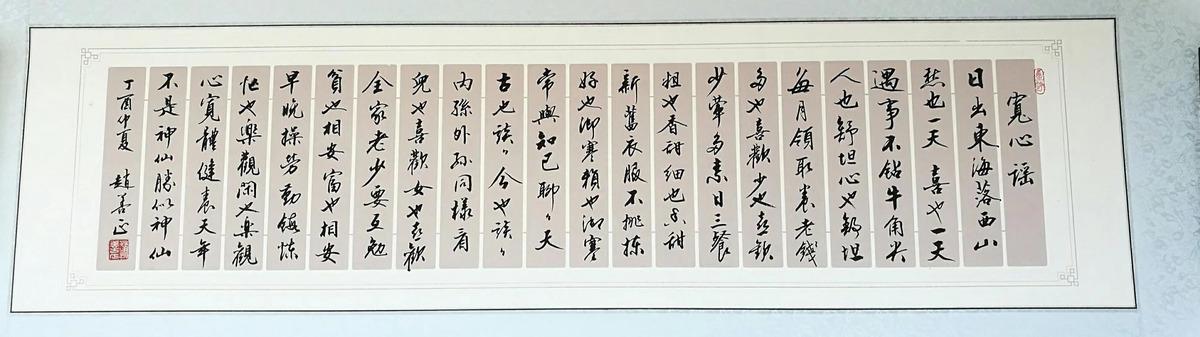 寬心謡
日出東海落西山
愁也一天喜也一天
遇事不鉆牛角尖
人也舒坦心也舒坦
每月領取養老錢
多也喜歡少也喜歡
少葷多素日三餐
粗也香甜細也香甜
新舊衣服不挑揀
好也御寒賴也御寒
常與知己聊聊天
古也談談今也談談
内孫外孫同樣看
兒也喜歡女也喜歡
全家老少要互勉
貧也相安富也相安
早晚操勞勤鍛煉
忙也樂觀閑也樂觀
心寬體健養天年
不是神仙勝似神仙
丁酉仲夏 趙善正